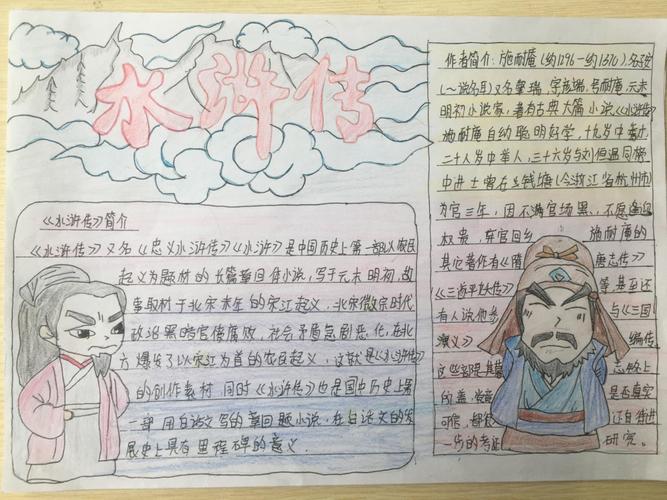 水浒传
《水浒传》简介
《水浒传》又名《忠义水浒传》《水浒》是中国历史上第一部以农民
起义为题材的长篇章回体小说,写于元末明初,故
事取材于北宋末年的宋江起义,北宋徽宗时代
政治黑暗官僚腐败,社会矛盾急剧恶化,在北
方爆发了以宋江为首的农民起义,这就是《水浒传》
的创作素材,同时《水浒传》也是国中历史上第
一部用白话文写的章回题小说,在白话文的发
展史上具有里程碑的意义.
作者简介:施耐庵(约1296一约1370)名子安
(一说名耳)又名肇瑞,字彦端,号耐庵,元末
明初小说家,著有古典大篇小说《水浒传》
施耐庵自幼聪明好学,十九岁中秀才,
二十八岁中举人,三十六岁与刘伯温同榜
中进士曾在钱塘(今浙江省杭州市)
为官三年,因不满官场黑,不愿逢迎
权贵,弃官回乡 施耐庵的
其它著作有《隋 唐志传》
《三遂平妖传》 等,甚至还
有人说他参 与《三国
演义》 编传
这些 是其墓 志铭上
所 是否真实
可信 还有待进
一步的考证 研究.